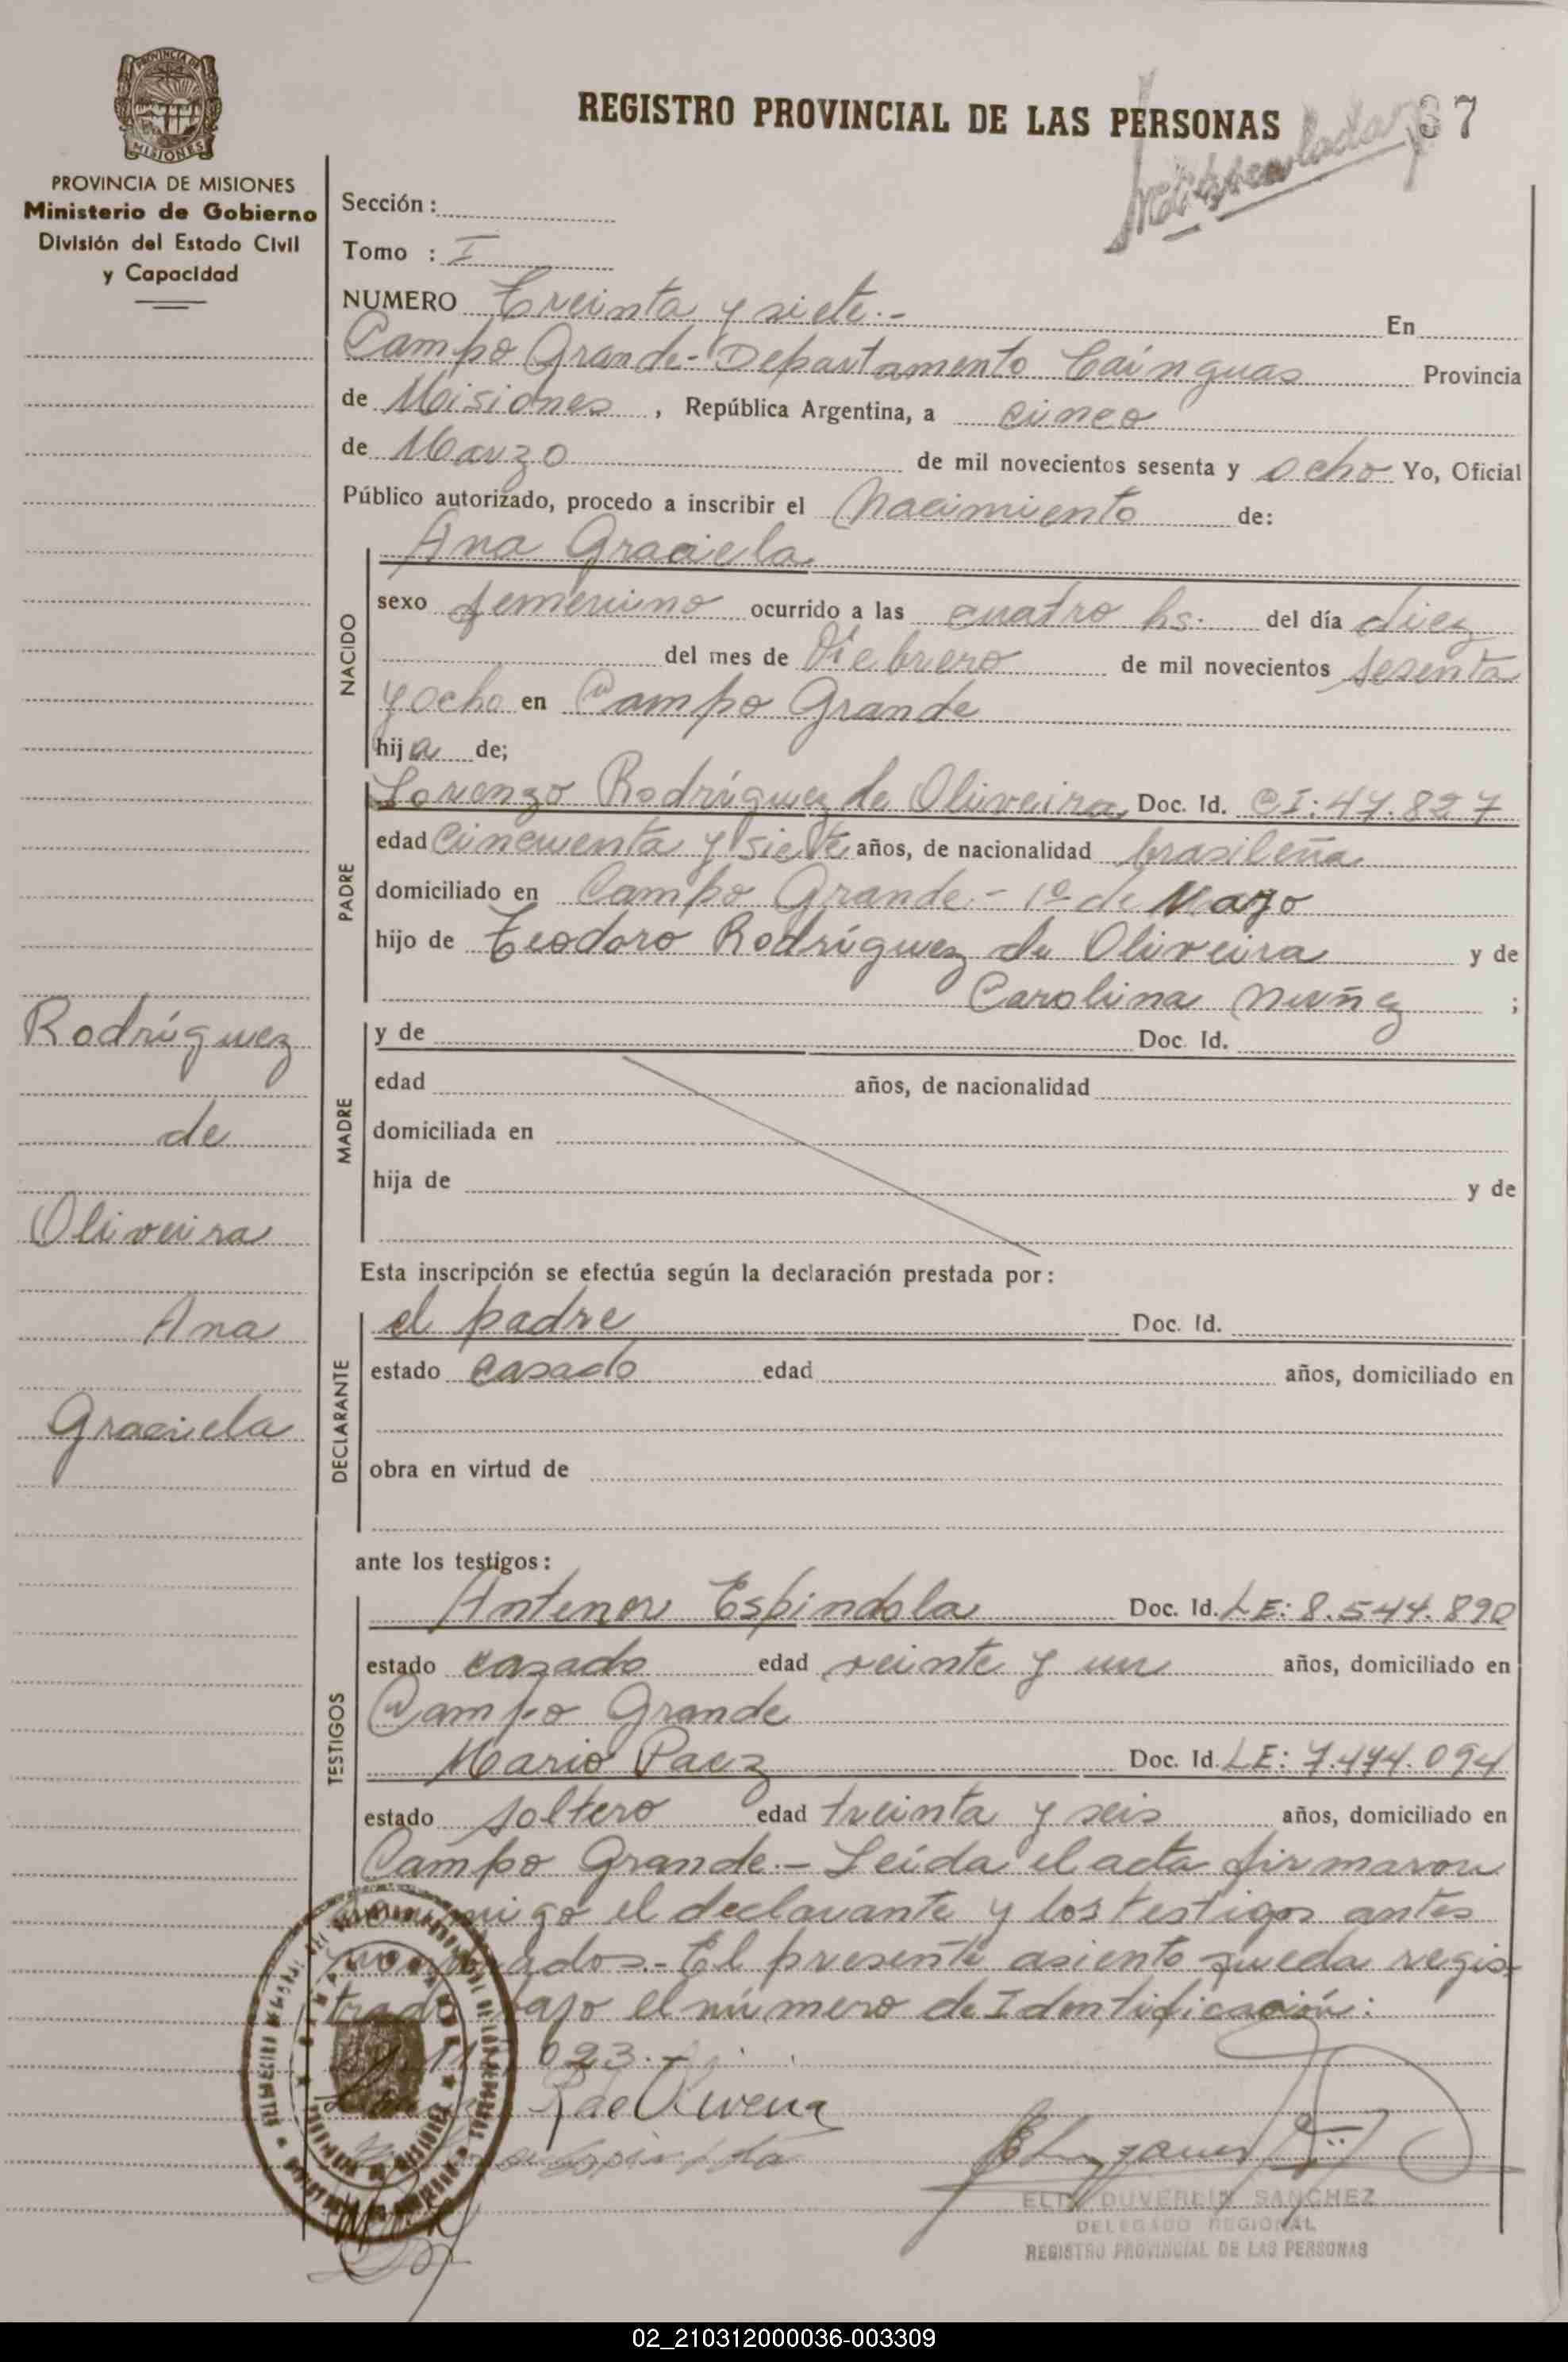 MISIONES
PROVINCIA DE MISIONES
Ministerio de Gobierno
División del Estado Civil
y Capacidad
REGISTRO PROVINCIAL DE LAS PERSONAS
37
Sección :
Tomo : I
NUMERO Treinta y siete.- En
Campo Grande - Departamento Cainguas Provincia
de Misiones, República Argentina, a cinco
de Marzo de mil novecientos sesenta y ocho Yo, Oficial
Público autorizado, procedo a inscribir el Nacimiento de:
Ana Graciela
NACIDO
sexo femenino ocurrido a las cuatro hs. del día diez
del mes de Febrero de mil novecientos sesenta
y ocho en Campo Grande
hija de;
PADRE
Lorenzo Rodríguez de Oliveira Doc. Id. CI: 47.827
edad Cincuenta y siete años, de nacionalidad brasileña
domiciliado en Campo Grande - 1º de Mayo
hijo de Teodoro Rodríguez de Oliveira y de
Carolina Nuñez ;
MADRE
y de Doc. Id.
edad años, de nacionalidad
domiciliada en
hija de y de
Rodríguez
de
Oliveira
Ana
Graciela
Esta inscripción se efectúa según la declaración prestada por :
DECLARANTE
el padre Doc. Id.
estado casado edad años, domiciliado en
obra en virtud de
ante los testigos :
TESTIGOS
Antenor Espindola Doc. Id. LE: 8.544.890
estado casado edad veinte y un años, domiciliado en
Campo Grande
Mario Paez Doc. Id. LE: 7.474.094
estado soltero edad treinta y seis años, domiciliado en
Campo Grande.- Leída el acta firmaron
el declarante y los testigos antes
El presente asiento queda regis-
trado bajo el número de Identificación:
023.-
R de Oliveira
DUVERLIN SANCHEZ
DELEGADO REGIONAL
REGISTRO PROVINCIAL DE LAS PERSONAS
02_210312000036-003309